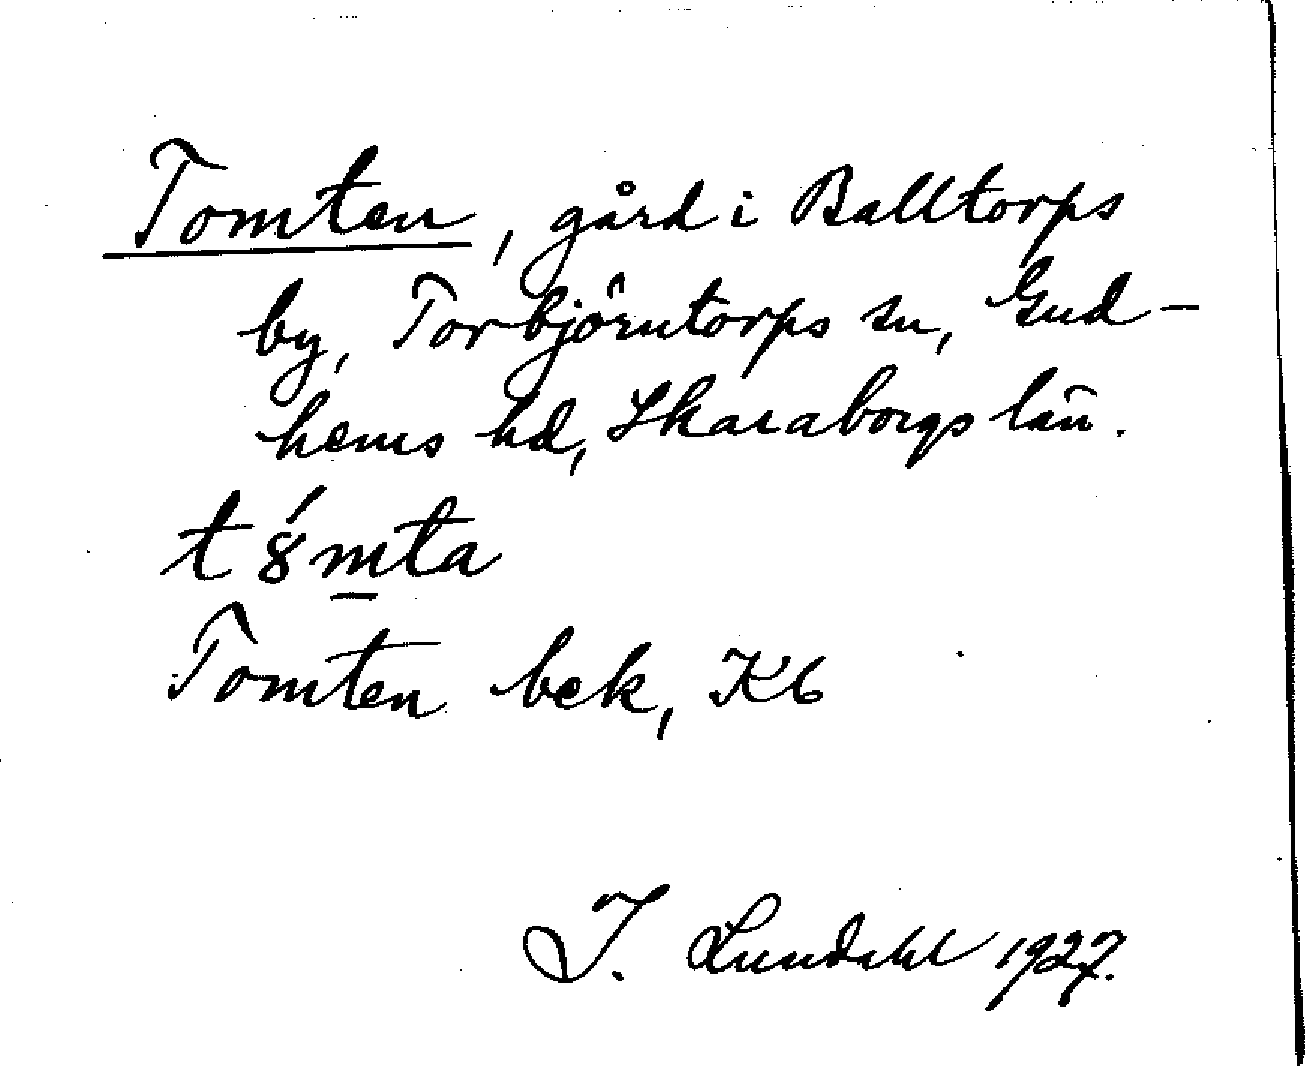 Tomten, gård i Balltorps
by, Torbjörntorps sn, Gud-
hems hd, Skaraborgs län.
t8́m̲ta
Tomten bek, Kb
I. Lundahl 1927.